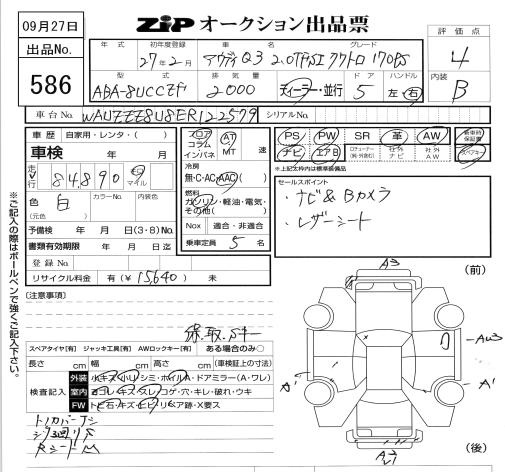 09月27日
ZIP オークション出品票
出品No.
586
年式 初年度登録 車名 グレード
27年2月 アウディ Q3 2.0TFSI クワトロ 170PS
型式 排気量 ドア ハンドル
ABA-8UCCZF 2000 ディーラー・並行 5 左・右
評価点
4
内装
B
車台No. WAUZZZ8U8ER122579 シリアルNo.
車歴 自家用・レンタ・( )
車検 年 月
走行 84,890 マイル
色 白 カラーNo. 内装色
(元色)
予備検 年 月 日(3・8)No.
書類有効期限 年 月 日迄
登録No.
リサイクル料金 有(¥15,640) 未
フロア
コラム
インパネ
AT
MT 速
冷房
無・C・AC・AAC( )
燃料
ガソリン・軽油・電気・
その他( )
Nox 適合・非適合
乗車定員 5 名
PS PW SR 革 AW
ナビ エアB 社外ナビ 社外AW
※上記太枠内は標準装備品
セールスポイント
・ナビ&Bカメラ
・レザーシート
※ご記入の際はボールペンで強くご記入下さい。
(注意事項)
保.取.Sキー
スペアタイヤ[有] ジャッキ工具[有] AWロックキー[有] ある場合のみ○
長さ cm 幅 cm 高さ cm (車検証上の寸法)
検査記入
外装 小キズ・小U・シミ・ホイルA・ドアミラー(A・ワレ)
室内 ヨゴレ・キズ・スレ・コゲ・穴・キレ・破れ・ウキ
FW トビ石・キズ・ヒビ・リペア跡・X要ス
(前)
A3
AW3
A'
A'
(後)